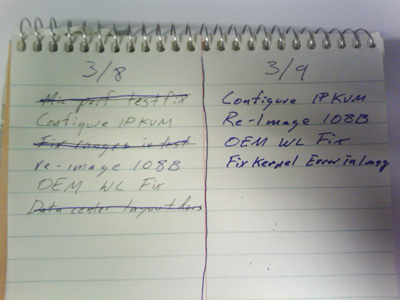 3/8
Mic perf test fix
Configure IPKVM
Fix ranges in test
re-image 108B
OEM WL Fix
Data center layout docs
3/9
Configure IPKVM
Re-Image 108B
OEM WL Fix
Fix Kernel Error in Img